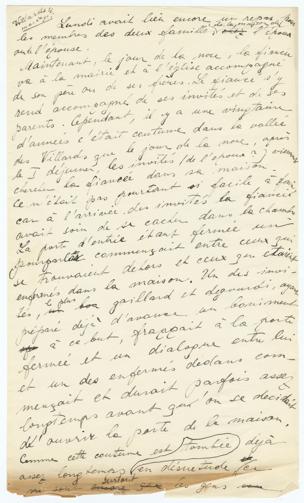 Lundi avait lieu encore un repas pour
les membres des deux familles de l'époux
ou de l'épouse.
Maintenant, le jour de la noce, le fiancé
va à la mairie et à l'église accompagné
de son père ou de ses frères. Le fiancé s'y
rend accompagné de ses invités et de ses
parents. Cependant, il y a une vingtaine
d'années c'était coutume dans la vallée
des Villards que le jour de la noce, après
le déjeuner, les invités (de l'époux) viennent
chercher la fiancée dans sa maison
Ce n'était pas pourtant facile à faire
car à l'arrivée des invités la fiancée
avait soin de se cacher dans la chambre
La porte d'entrée étant fermée un
commençait entre ceux qui
se trouvaient dehors et ceux qui étaient
enfermés dans la maison. Un des invi-
tés, le plus gaillard et dégourdi, ayant
préparé déjà d'avance un boniment
à ce but, frappait à la porte
fermée et un dialogue entre lui
et un des enfermés dedans com-
mençait et durait parfois assez
longtemps avant que l'on se décidât
d'ouvrir la porte de la maison.
Comme cette coutume est tombée déjà
assez longtemps (en désuétude)
surtout les gens